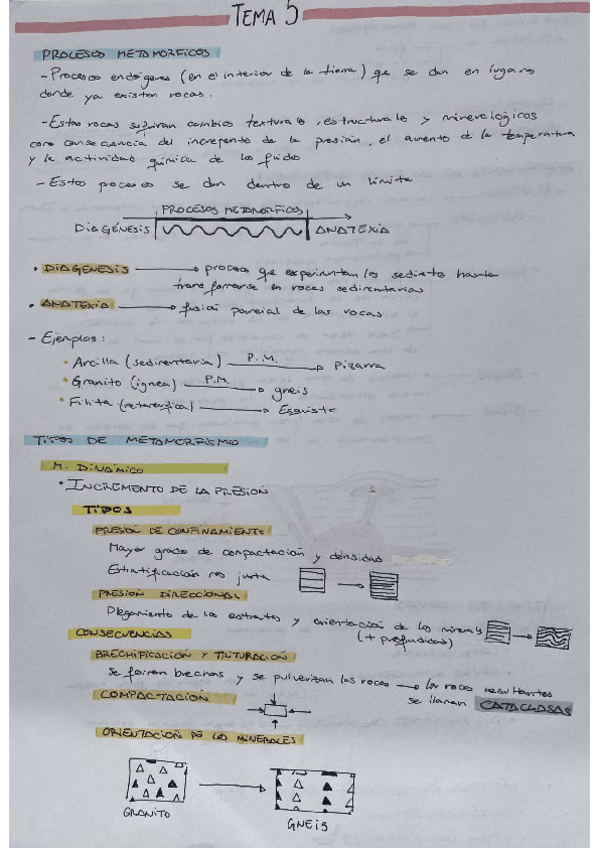 TEMA 5
PROCESOS METAMORFICOS
- Procesos endógenos (en el interior de la tierra) que se dan en lugares
donde ya existen rocas.
- Estas rocas sufriran cambios texturales, estructurales y mineralógicos
como consecuencia del incremento de la presión, el aumento de la temperatura
y la actividad química de los fluidos
- Estos procesos se dan dentro de un límite
PROCESOS METAMORFICOS
DIAGÉNESIS ANATEXIA
• DIAGENESIS procesos que experimentan los sedimentos hasta
transformarse en rocas sedimentarias
• ANATEXIA fusión parcial de las rocas
- Ejemplos:
• Arcilla (sedimentaria) P.M. Pizarra
• Granito (ignea) P.M. gneis
• Filita (metamorfica) Esquisto
TIPOS DE METAMORFISMO
M. DINÁMICO
• INCREMENTO DE LA PRESIÓN
TIPOS
PRESIÓN DE CONFINAMIENTO
Mayor grado de compactación y densidad
Estratificación mas junta
PRESION DIRECCIONAL
Plegamiento de los estratos y orientación de los minerales
(+ profundidad)
CONSECUENCIAS
BRECHIFICACIÓN Y TRITURACIÓN
Se forman brechas y se pulverizan las rocas → las rocas resultantes
se llaman CATACLOSAS
COMPACTACIÓN
ORIENTACIÓN DE LOS MINERALES
GRANITO
GNEIS